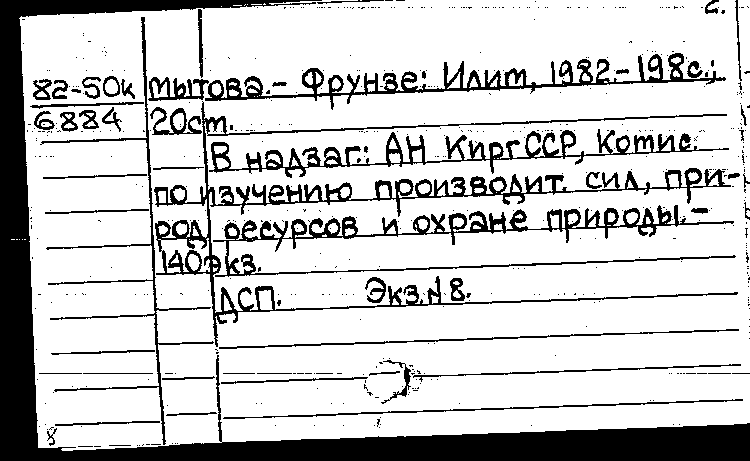 2.
82-50к мытова.- Фрунзе: Илим, 1982.-198с.;
6884 20см.
В надзаг.: АН КиргССР, Комис.
по изучению производит. сил, при-
род. ресурсов и охране природы.-
140экз.
ДСП. Экз.№8.
8